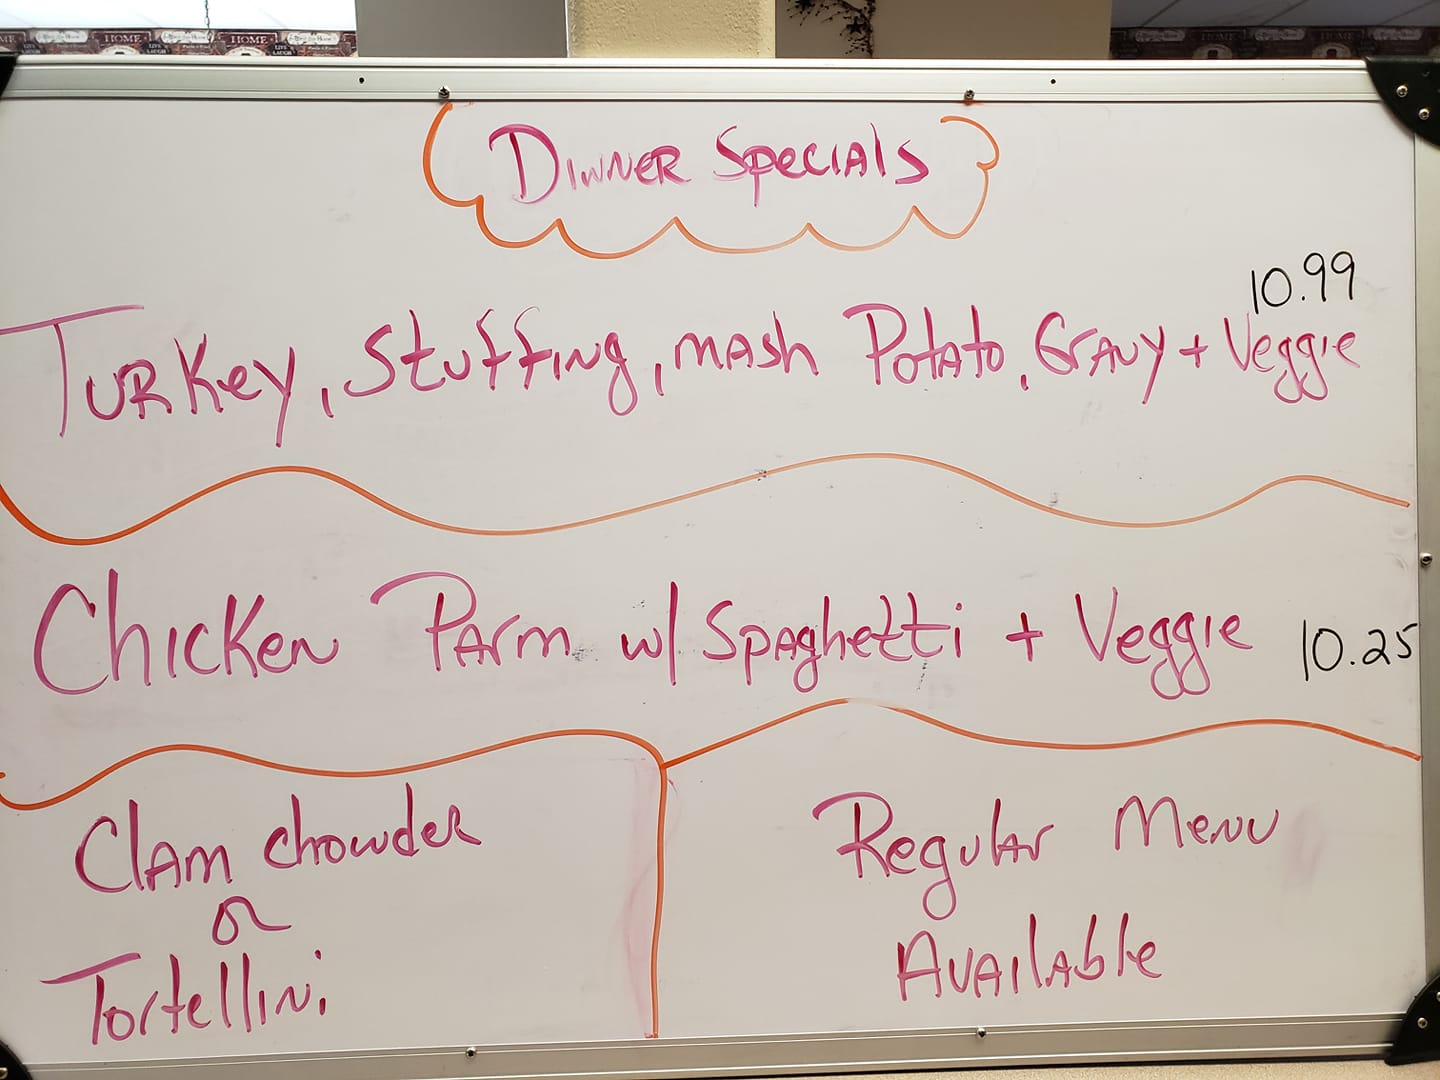 HOME
HOME
LIVE
LAUGH
HOME
HOME
Dinner Specials
10.99
Turkey, Stuffing, mash Potato, Gravy + Veggie
Chicken Parm w/ Spaghetti + Veggie 10.25
Clam chowder
or
Tortellini
Regular Menu
Available